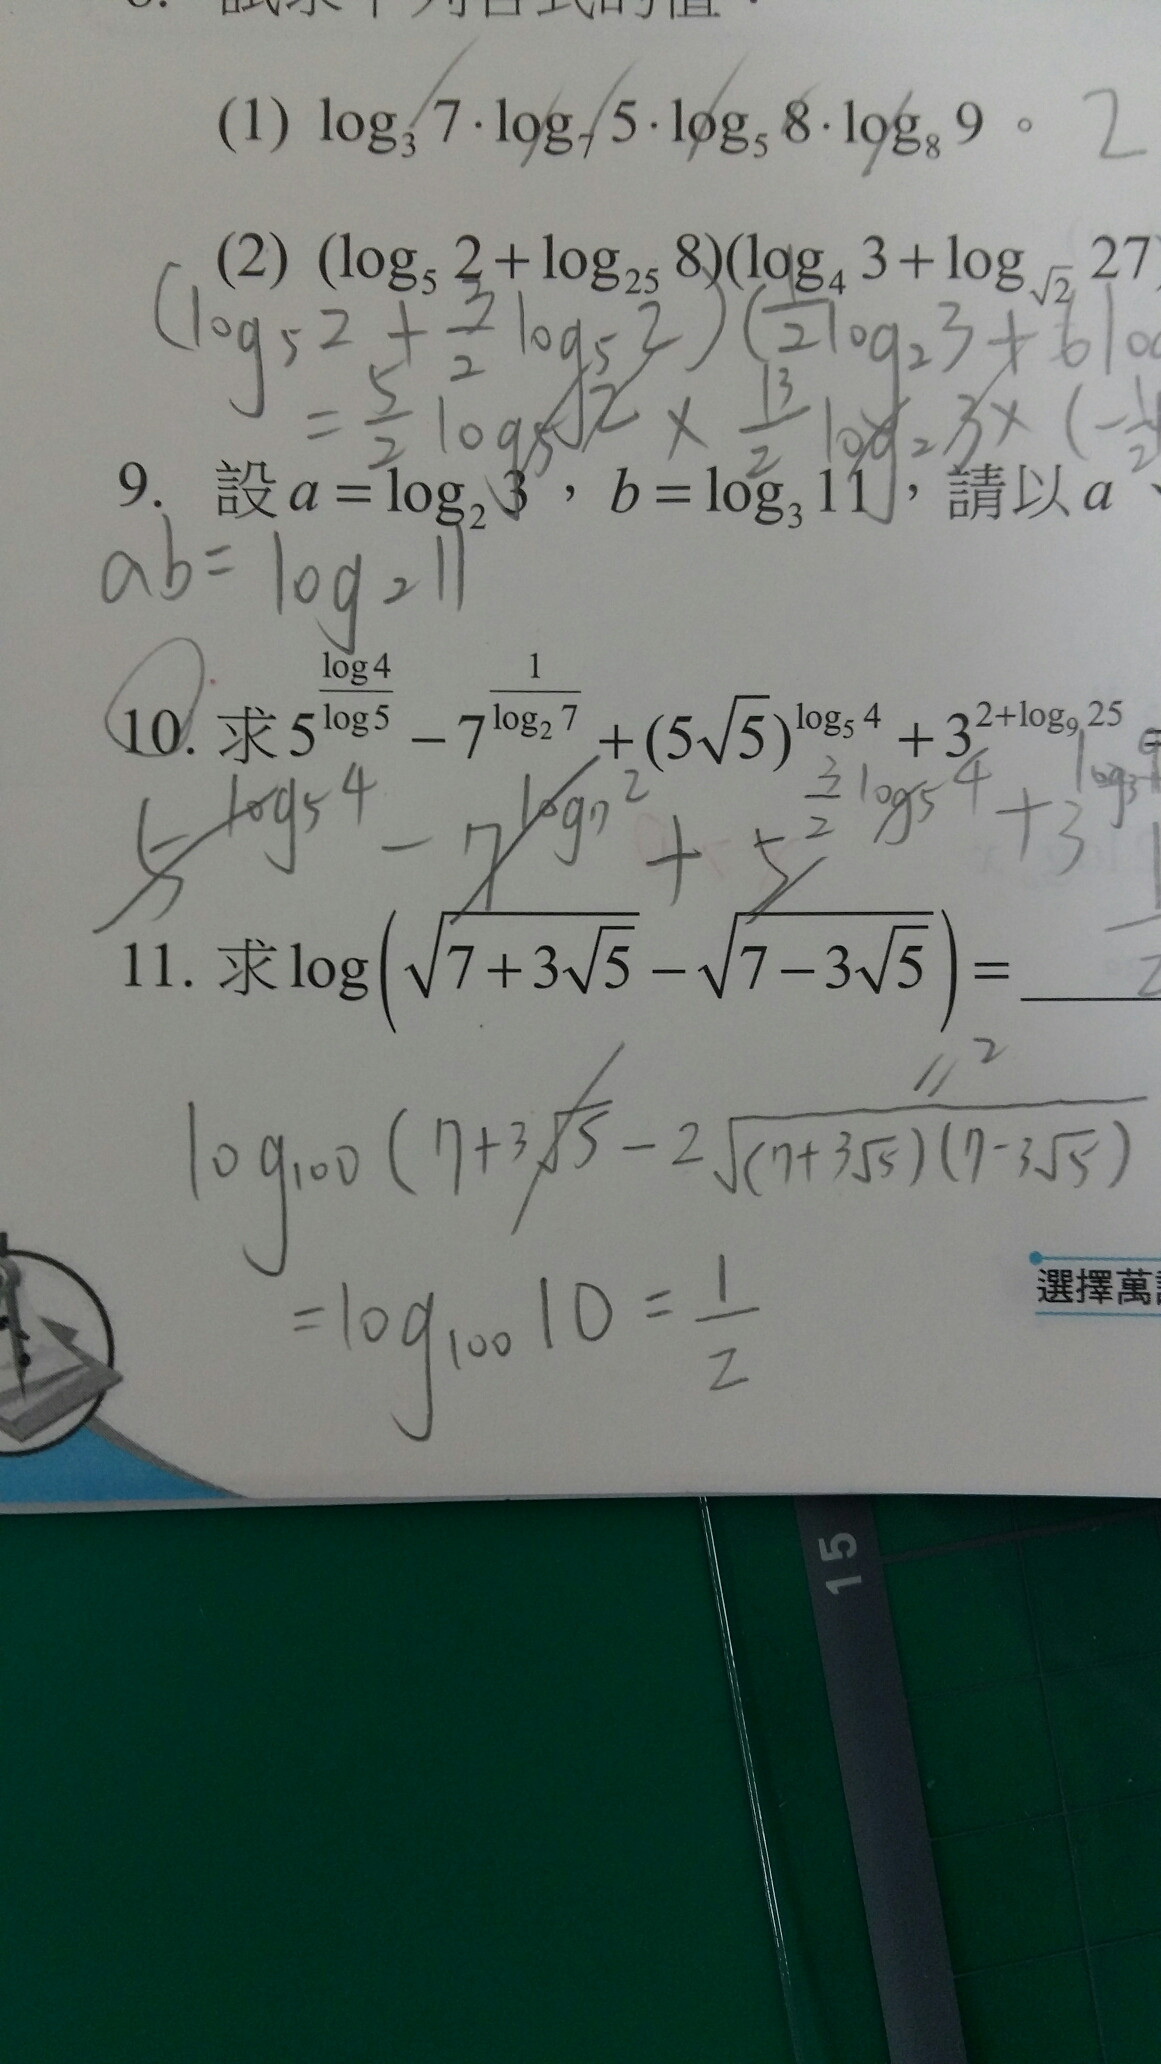 試求下列各式的值：
(1) log₃ 7 · log₇ 5 · log₅ 8 · log₈ 9 。 2
(2) (log₅ 2 + log₂₅ 8)(log₄ 3 + log_√2 27)
(log₅ 2 + 3/2 log₅ 2)(1/2 log₂ 3 + 6 log
= 5/2 log₅ 2 × 13/2 log₂ 3 × (-1/2
9. 設 a = log₂ 3 ， b = log₃ 11 ，請以 a 、
ab = log₂ 11
10. 求 5^(log 4 / log 5) − 7^(1 / log₂ 7) + (5√5)^(log₅ 4) + 3^(2+log₉ 25) =
5^(log₅ 4) − 7^(log₇ 2) + 5^(3/2 log₅ 4) + 3^(log₃ 9
11. 求 log(√(7+3√5) − √(7−3√5)) =
2
log₁₀₀ (7+3√5 − 2√((7+3√5)(7−3√5))
= log₁₀₀ 10 = 1/2
選擇萬
15